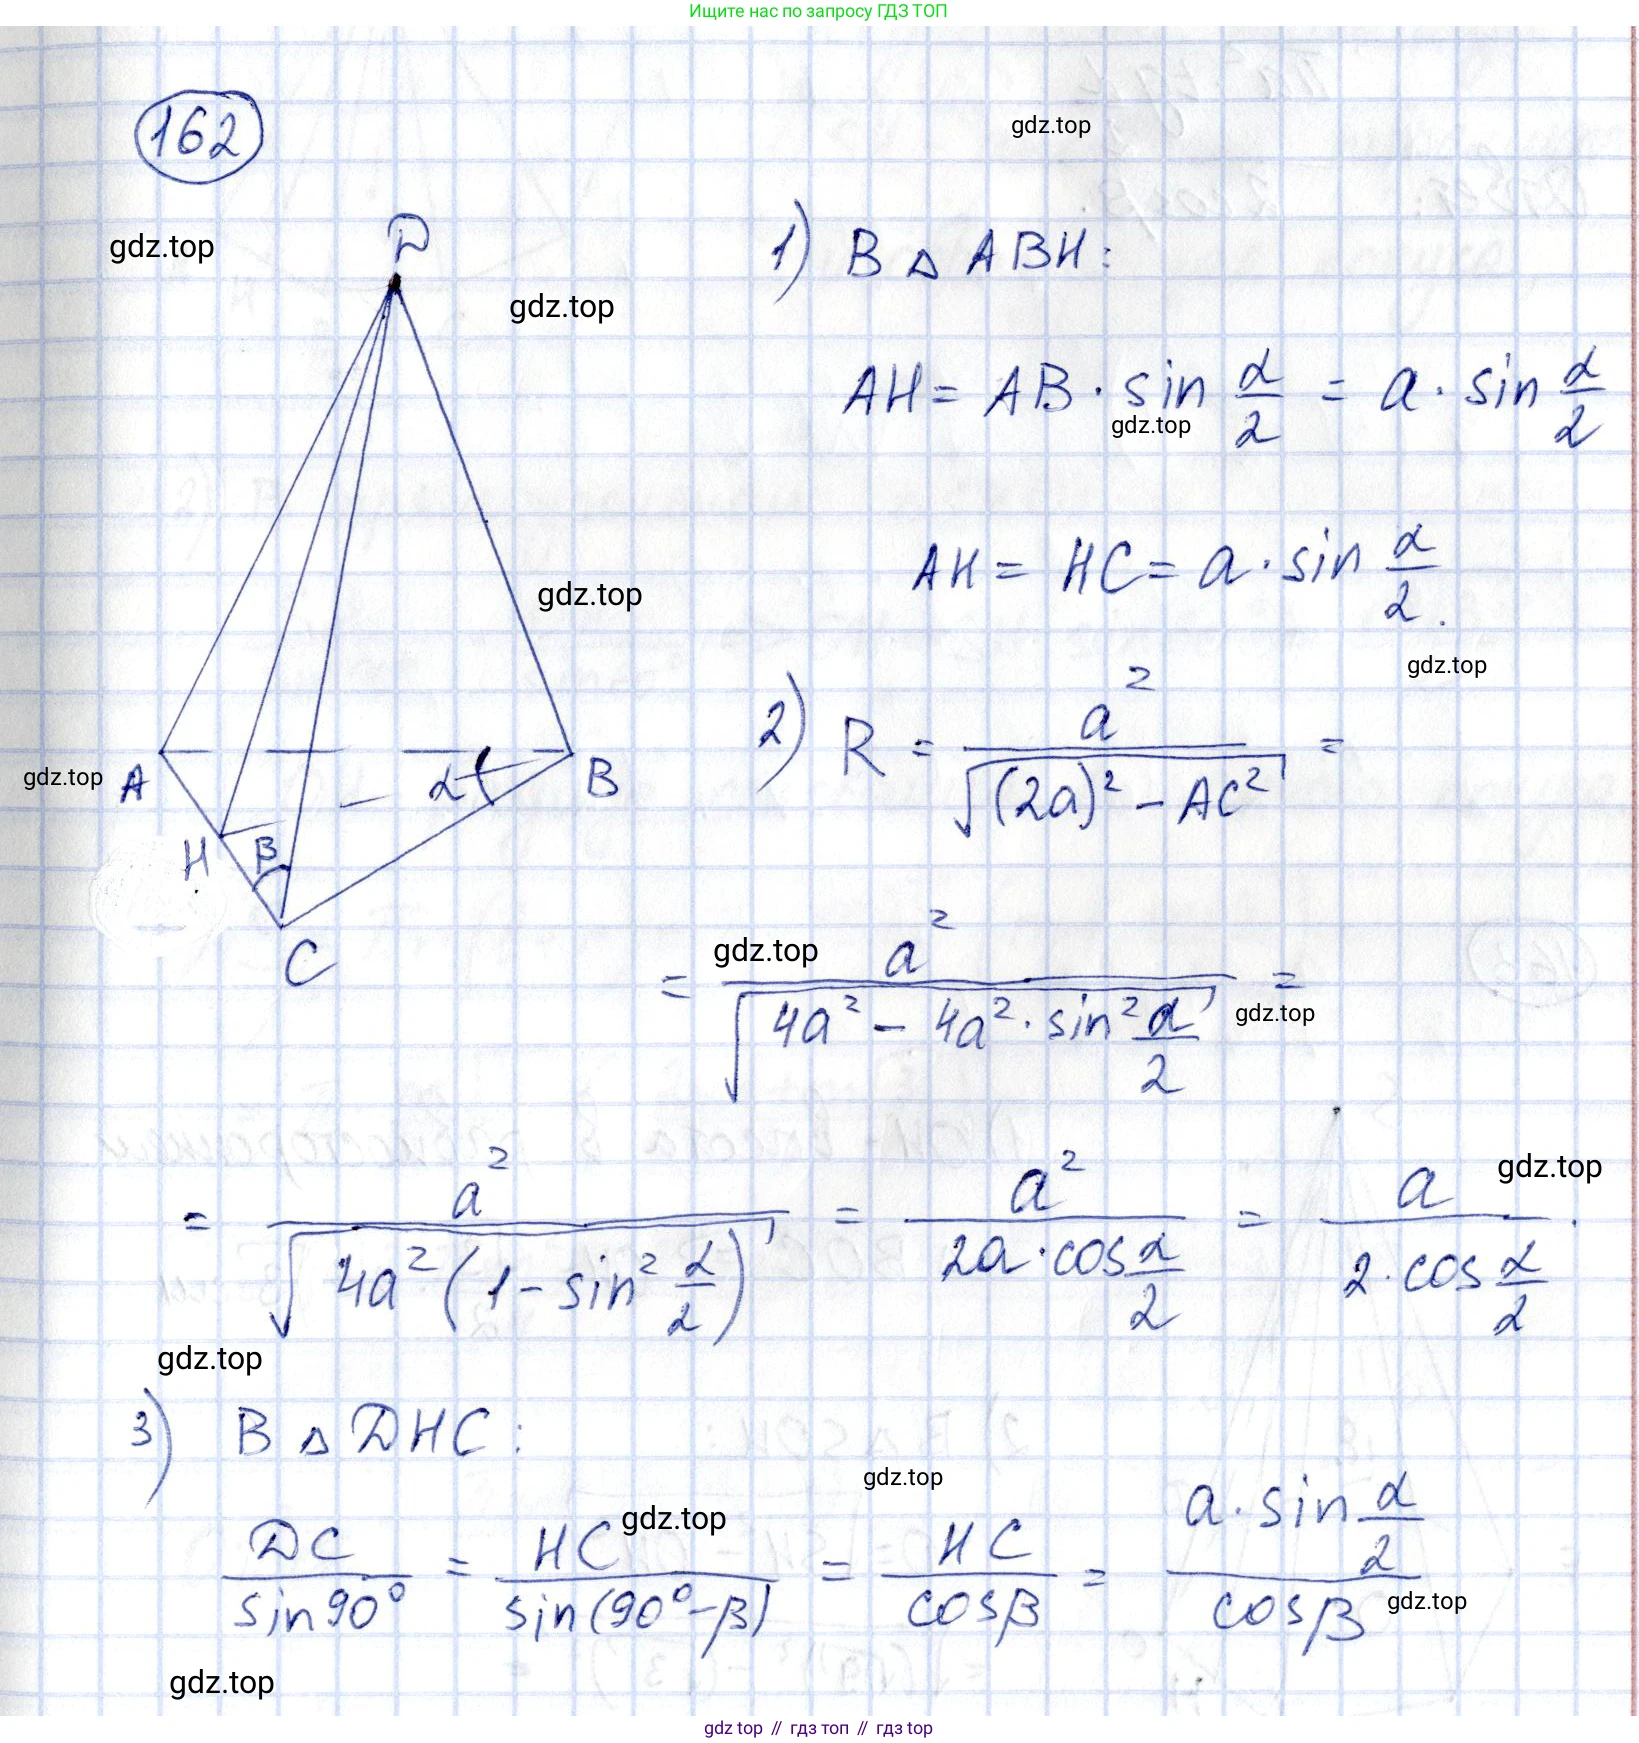 Ищите нас по запросу ГДЗ ТОП
162
gdz.top
gdz.top
D
gdz.top
1) В △ ABH:
AH = AB · sin α/2 = a · sin α/2
gdz.top
gdz.top
AH = HC = a · sin α/2.
gdz.top
A
α
B
H
β
C
gdz.top
2) R = a² / √((2a)² − AC²) =
gdz.top
= a² / √(4a² − 4a² · sin² α/2) =
gdz.top
= a² / √(4a² (1 − sin² α/2)) = a² / (2a · cos α/2) = a / (2 · cos α/2).
gdz.top
gdz.top
3) В △ DHC:
gdz.top
gdz.top
DC / sin 90° = HC / sin(90° − β) = HC / cos β = a · sin α/2 / cos β
gdz.top
gdz.top
gdz top // гдз топ // гдз top